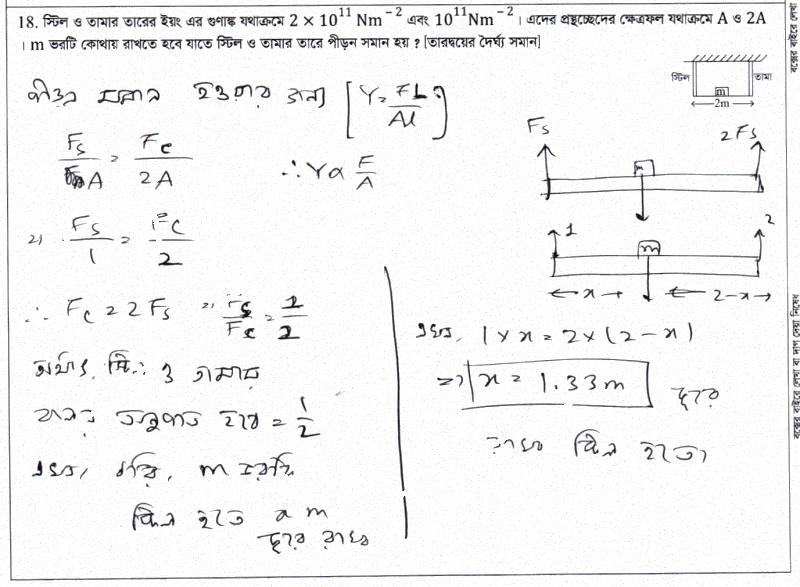 18. স্টিল ও তামার তারের ইয়ং এর গুণাঙ্ক যথাক্রমে 2 × 10¹¹ Nm⁻² এবং 10¹¹Nm⁻² । এদের প্রস্থচ্ছেদের ক্ষেত্রফল যথাক্রমে A ও 2A
। m ভরটি কোথায় রাখতে হবে যাতে স্টিল ও তামার তারে পীড়ন সমান হয় ? [তারদ্বয়ের দৈর্ঘ্য সমান]
স্টিল
তামা
m
2m
পীড়ন সমান হওয়ার জন্য [Y = FL/Al]
Fs/A = Fc/2A
∴ Y ∝ F/A
⇒ Fs/1 = Fc/2
∴ Fc = 2Fs ⇒ Fs/Fc = 1/2
অর্থাৎ, স্টিল ও তামার
বলের অনুপাত হবে = 1/2
এখন, ধরি, m ভরটি
স্টিল হতে x m
দূরে রাখব
Fs
2Fs
m
1
2
m
x
2-x
এখন, 1 × x = 2 × (2 - x)
⇒ x = 1.33 m দূরে
রাখব স্টিল হতে।
বক্সের বাইরে লেখা বা দাগ দেয়া নিষেধ